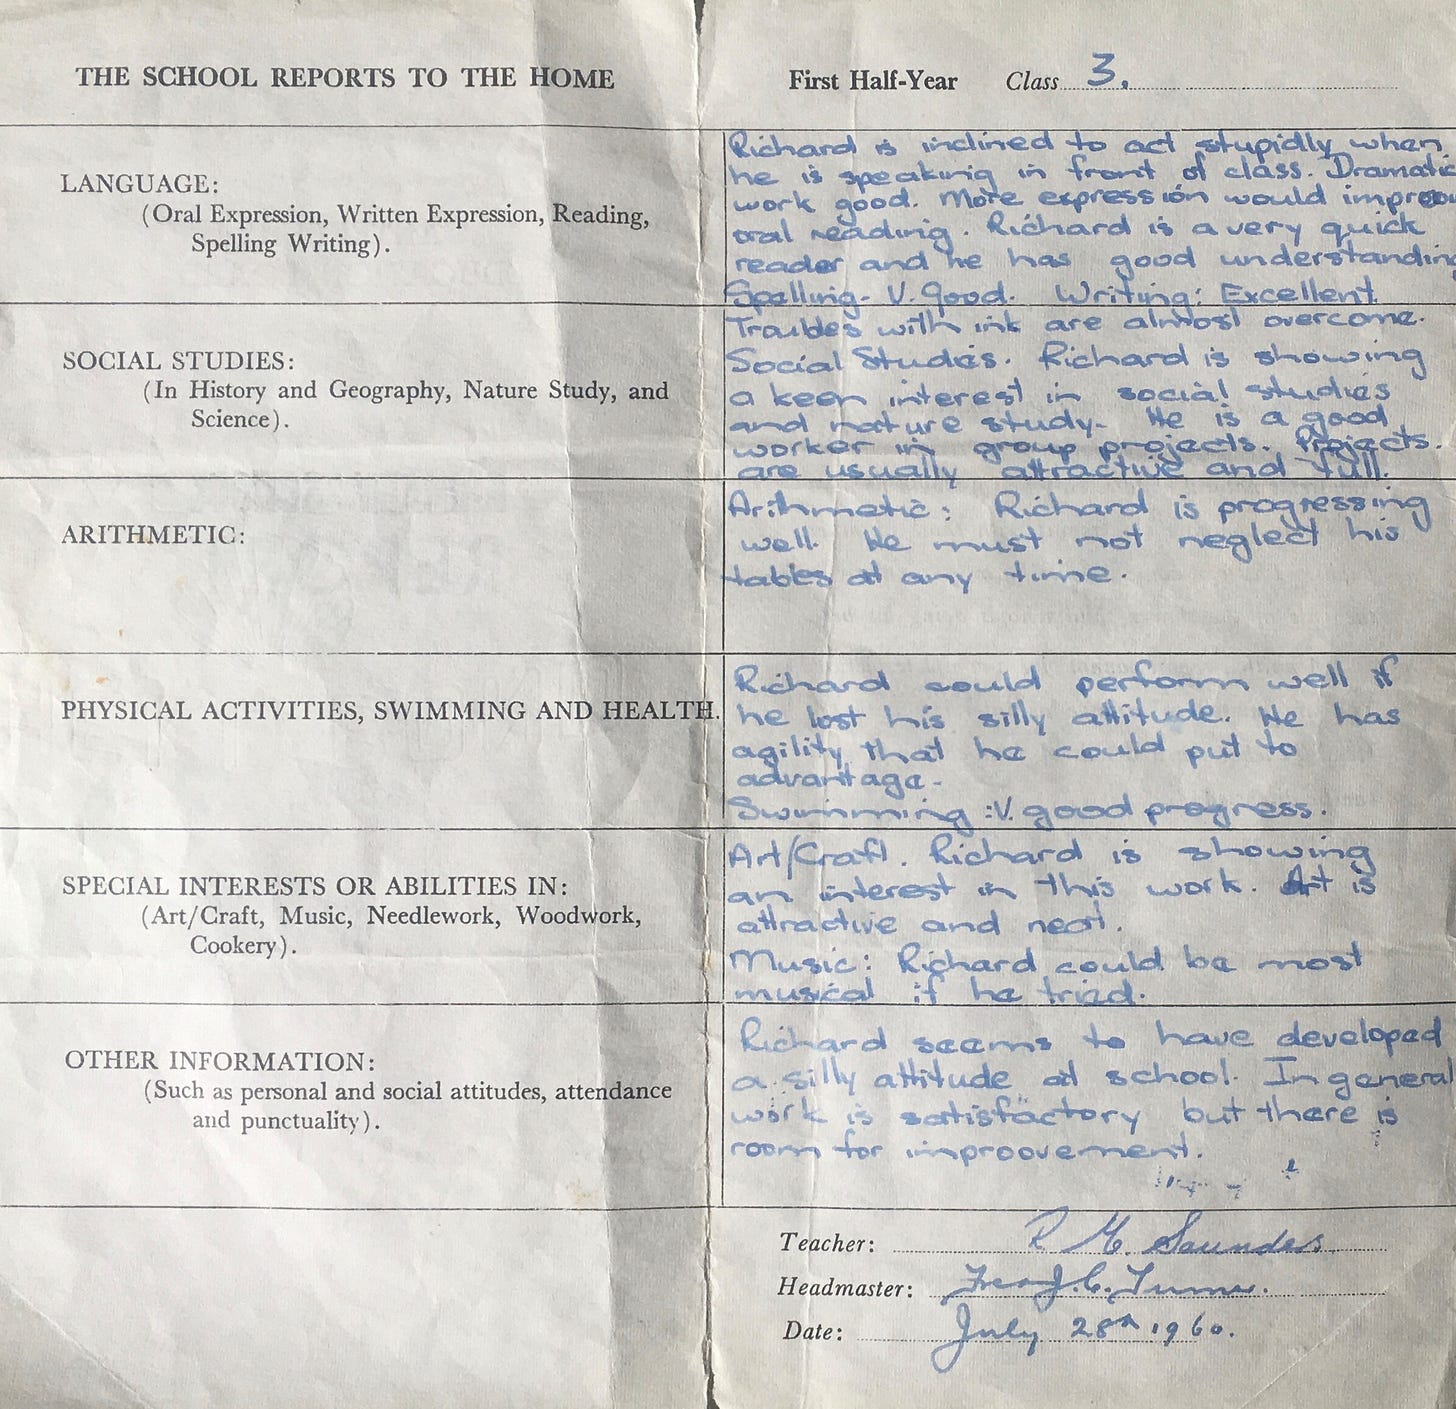 THE SCHOOL REPORTS TO THE HOME
First Half-Year Class 3.
LANGUAGE:
(Oral Expression, Written Expression, Reading,
Spelling Writing).
Richard is inclined to act stupidly when
he is speaking in front of class. Dramatic
work good. More expression would improve
oral reading. Richard is a very quick
reader and he has good understanding
Spelling- V. Good. Writing: Excellent
Troubles with ink are almost overcome.
SOCIAL STUDIES:
(In History and Geography, Nature Study, and
Science).
Social Studies. Richard is showing
a keen interest in social studies
and nature study. He is a good
worker in group projects. Projects.
are usually attractive and full.
ARITHMETIC:
Arithmetic: Richard is progressing
well. He must not neglect his
tables at any time.
PHYSICAL ACTIVITIES, SWIMMING AND HEALTH.
Richard could perform well if
he lost his silly attitude. He has
agility that he could put to
advantage.
Swimming: V. good progress.
SPECIAL INTERESTS OR ABILITIES IN:
(Art/Craft, Music, Needlework, Woodwork,
Cookery).
Art/Craft. Richard is showing
an interest in this work. Art is
attractive and neat.
Music: Richard could be most
musical if he tried.
OTHER INFORMATION:
(Such as personal and social attitudes, attendance
and punctuality).
Richard seems to have developed
a silly attitude at school. In general
work is satisfactory but there is
room for improovement.
Teacher: R M. Saunders
Headmaster: J. C.
Date: July 28th 1960.